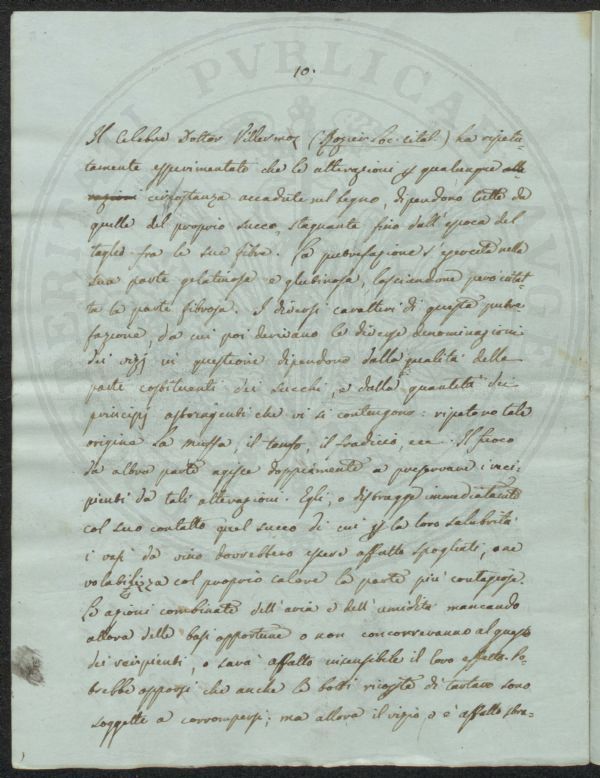 10.
Il celebre Dottor Villermoz (Rozier Loc. citat.) ha ripetu-
tamente esperimentato che le alterazioni p qualunque alte
razioni circostanza accadute nel legno, dipendono tutte da
quelle del proprio succo stagnante fino dall'epoca del
taglio fra le sue fibre. La putrefazione s'esercita nella
sua parte gelatinosa e glutinosa, lasciandone però intat-
ta la parte fibrosa. I diversi caratteri di questa putre-
fazione, da cui poi derivano le diverse denominazioni
dei vizj in questione dipendono dalla qualità delle
parti costituenti dei succhi, e dalla quantità dei
principj astringenti che vi si contengono: ripetono tale
origine la muffa, il tanfo, il fradiccio, ecc. Il fuoco
da altra parte agisce doppiamente a preservare i reci-
pienti da tali alterazioni. Egli, o distrugge immediatamte
col suo contatto quel succo di cui p la loro salubrità
i vasi da vino dovrebbero essere affatto spogliati, o ne
volatilizza col proprio calore la parte più contagiosa.
Le azioni combinate dell'aria e dell'umidità mancando
allora delle basi opportune o non concorreranno al guasto
dei recipienti, o sarà affatto insensibile il loro effetto. Po-
trebbe opporsi che anche le botti ricoperte di tartaro sono
soggette a corrompersi; ma allora il vizio o è affatto stra-